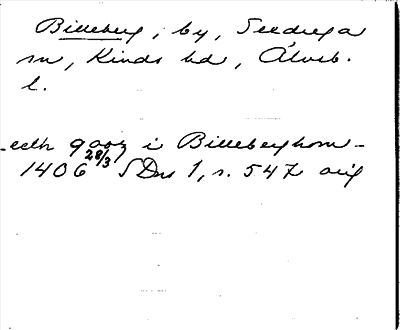 Billeberg, by, Seedrega
sn, Kinds hd, Älvsb.
l.
-eeth gooz i Billebeghom-
1406 28/3 SDns 1, s. 547 orig